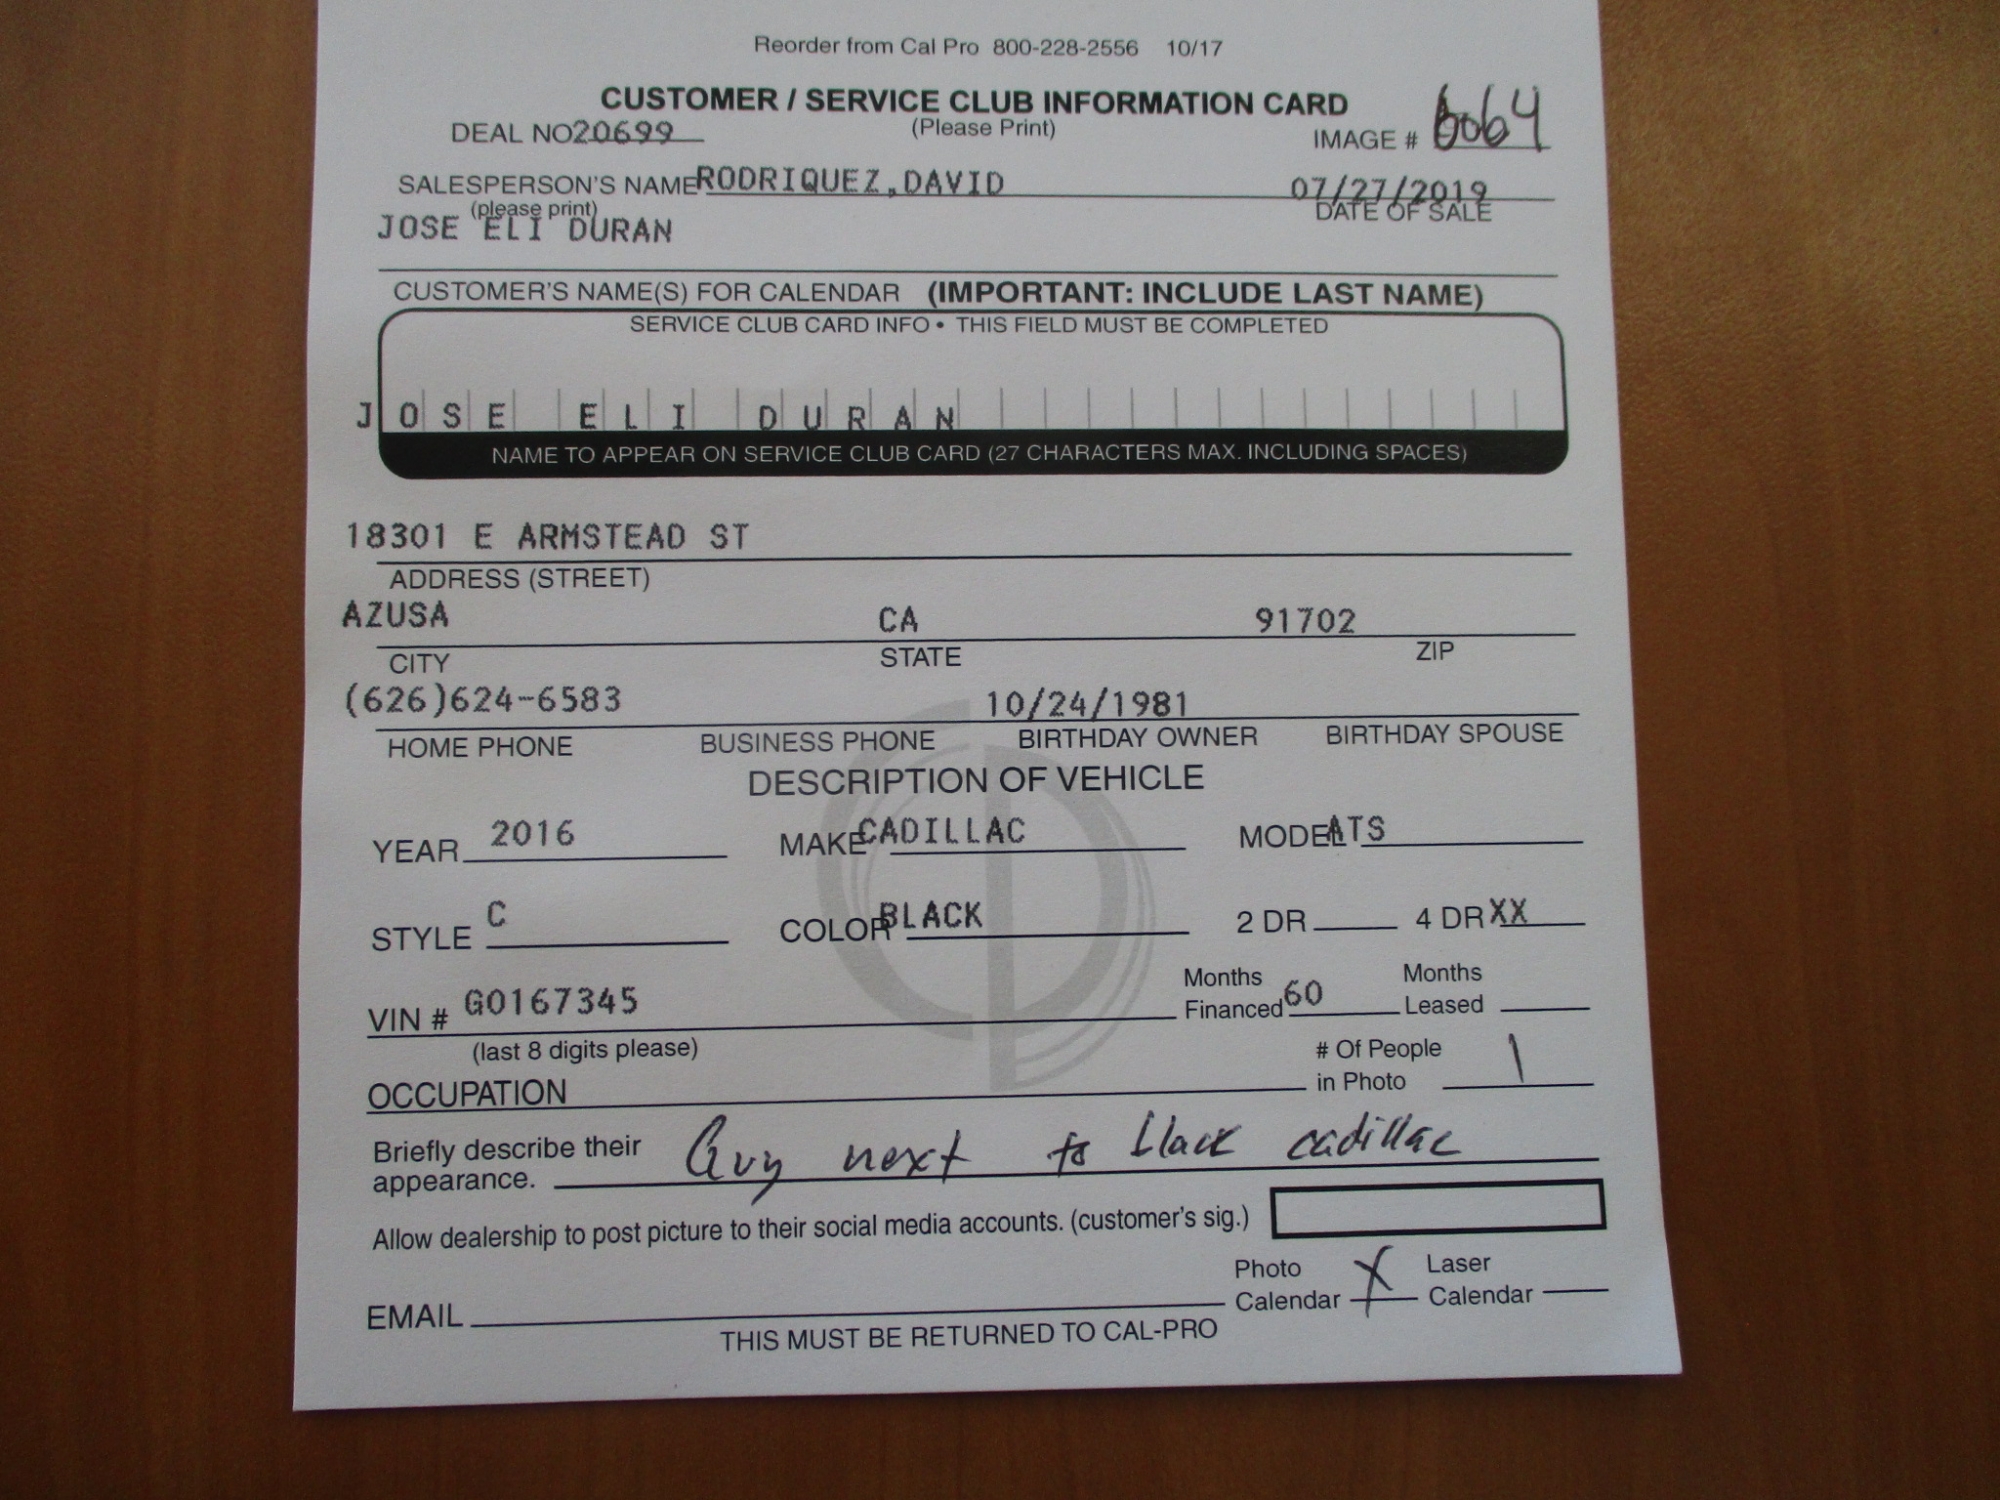 Reorder from Cal Pro 800-228-2556 10/17
CUSTOMER / SERVICE CLUB INFORMATION CARD
DEAL NO20699 (Please Print) IMAGE # 6064
SALESPERSON'S NAME RODRIQUEZ,DAVID 07/27/2019
(please print) DATE OF SALE
JOSE ELI DURAN
CUSTOMER'S NAME(S) FOR CALENDAR (IMPORTANT: INCLUDE LAST NAME)
SERVICE CLUB CARD INFO • THIS FIELD MUST BE COMPLETED
JOSE ELI DURAN
NAME TO APPEAR ON SERVICE CLUB CARD (27 CHARACTERS MAX. INCLUDING SPACES)
18301 E ARMSTEAD ST
ADDRESS (STREET)
AZUSA CA 91702
CITY STATE ZIP
(626)624-6583 10/24/1981
HOME PHONE BUSINESS PHONE BIRTHDAY OWNER BIRTHDAY SPOUSE
DESCRIPTION OF VEHICLE
YEAR 2016 MAKE CADILLAC MODEL ATS
STYLE C COLOR BLACK 2 DR 4 DR XX
VIN # G0167345 Months Financed 60 Months Leased
(last 8 digits please) # Of People in Photo 1
OCCUPATION
Briefly describe their appearance. Guy next to black cadillac
Allow dealership to post picture to their social media accounts. (customer's sig.)
EMAIL Photo Calendar X Laser Calendar
THIS MUST BE RETURNED TO CAL-PRO